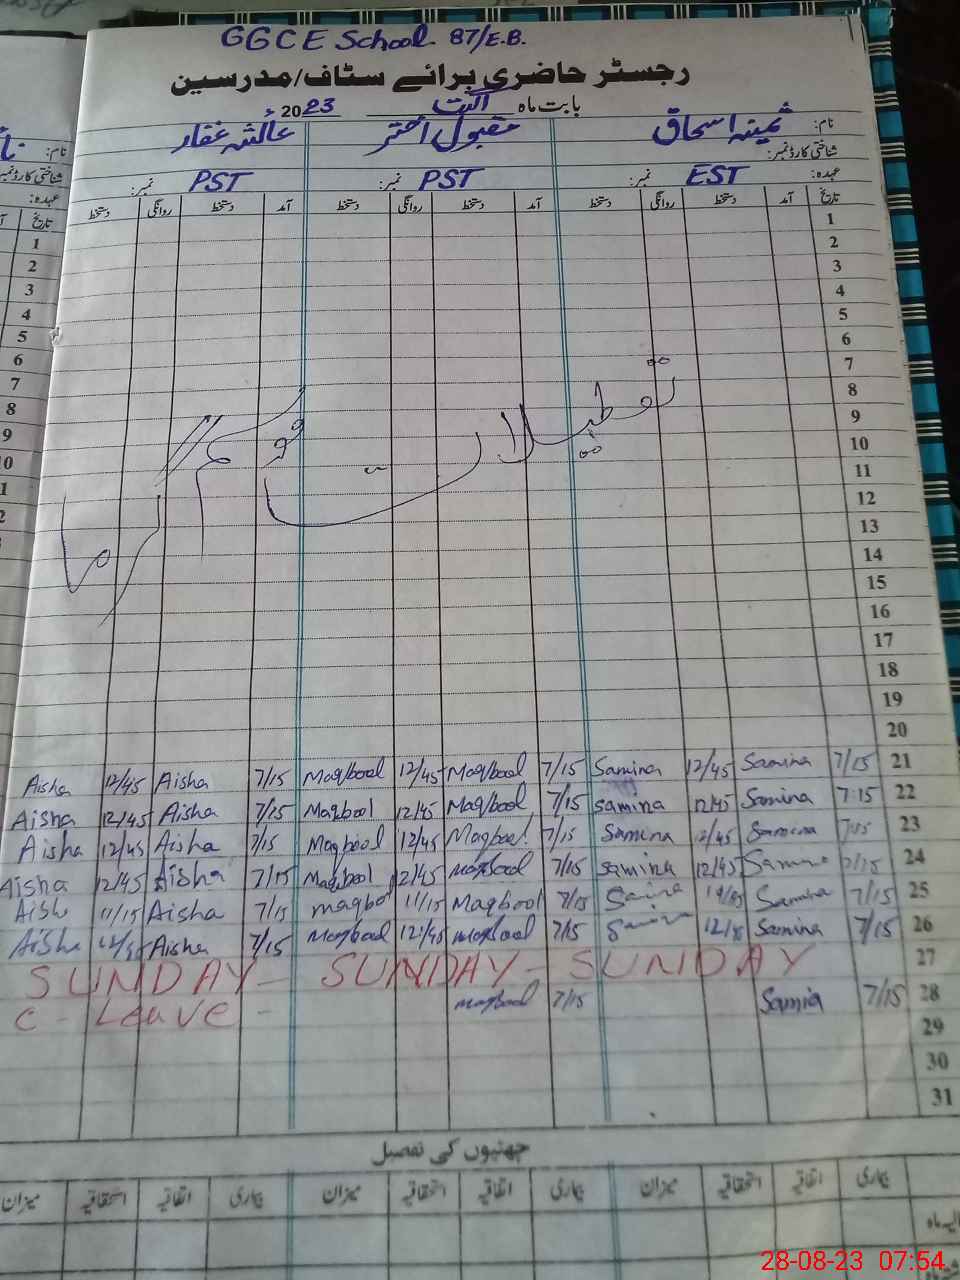 GGCE School 87/E.B.
رجسٹر حاضری برائے سٹاف/مدرسین
بابت ماہ اگست 2023
نام: ثمینہ اسحاق مقبول اختر عائشہ غفار
شناختی کارڈ نمبر:
عہدہ: EST نمبر: PST نمبر: PST
تاریخ آمد دستخط روانگی دستخط آمد دستخط روانگی دستخط آمد دستخط روانگی دستخط
1
2
3
4
5
6
7
8
9
10
11
12
13
14
15
16
17
18
19
20
تعطیلات موسم گرما
Aisha 12/45 Aisha 7/15 Maqbool 12/45 Maqbool 7/15 Samina 12/45 Samina 7/15 21
Aisha 12/45 Aisha 7/15 Maqbool 12/45 Maqbool 7/15 Samina 12/45 Samina 7:15 22
Aisha 12/45 Aisha 7/15 Maqbool 12/45 Maqbool 7/15 Samina 12/45 Samina 23
Aisha 12/45 Aisha 7/15 Maqbool 12/45 Maqbool 7/15 Samina 12/45 Samina 7/15 24
11/15 Aisha 7/15 maqbol 11/15 Maqbool 7/15 Samina 7/15 25
Aisha Aisha 7/15 Maqbool 12/45 maqbool 7/15 Samina 7/15 26
SUNDAY - SUNDAY - SUNDAY 27
C - Leave - maqbool 7/15 Samia 7/15 28
29
30
31
چھٹیوں کی تفصیل
بیماری اتفاقیہ استحقاقیہ میزان بیماری اتفاقیہ استحقاقیہ میزان بیماری اتفاقیہ استحقاقیہ میزان
28-08-23 07:54